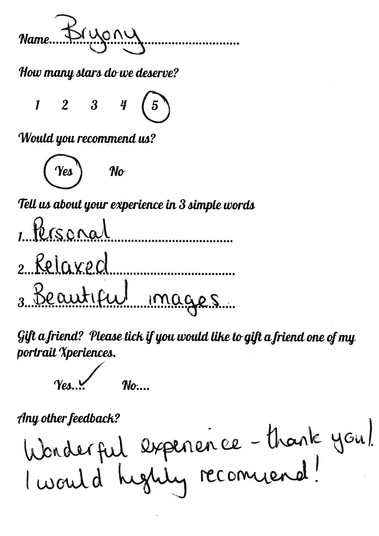 Name....Bryony..............................
How many stars do we deserve?
1 2 3 4 5
Would you recommend us?
Yes No
Tell us about your experience in 3 simple words
1...Personal..............................
2...Relaxed..............................
3...Beautiful images...
Gift a friend? Please tick if you would like to gift a friend one of my
portrait Xperiences.
Yes...✓ No....
Any other feedback?
Wonderful experience - thank you!
I would highly recommend!